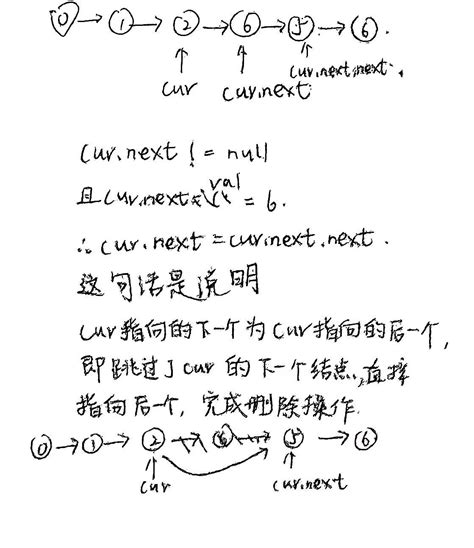 0 → 1 → 2 → 6 → 5 → 6.
cur cur.next cur.next.next.
cur.next != null
且cur.next.val = 6.
∴ cur.next = cur.next.next.
这句话是说明
cur指向的下一个为cur指向的后一个,
即跳过了cur的下一个结点,直接
指向后一个,完成删除操作.
0 → 1 → 2 → 6 → 5 → 6
cur cur.next